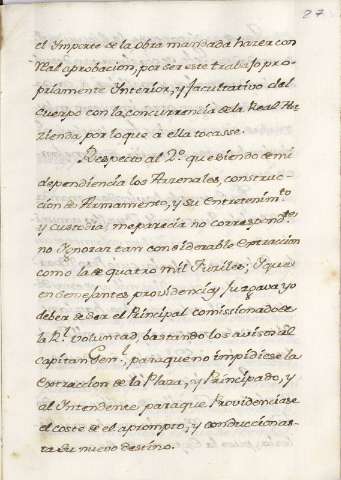 27
el Importe de la obra mandada hazer con
Real aprobacion, por ser este trabajo pro-
priamente Interior, y facultativo del
Cuerpo con la concurrencia de la Real Ha-
zienda por lo que à ella tocasse.
Respecto al 2º. que siendo de mi
dependiencia los Arzenales, construc-
cion de Armamento, y su Entretenim.to
y custodia, me parecia no correspond.te
no Ignorar tan considerable Extraccion
como la de quatro mil Fusiles; Y que
en semejantes providencias Juzgava yo
debia de ser el Principal comissionado de
la R.l voluntad, bastando los avisos al
Capitan Gen.l, para que no impidiese la
Extraccion de la Plaza, y Principado, y
al Intendente para que Providenciase
el coste de el apromto, y conduccion as-
ta su nuevo destino.